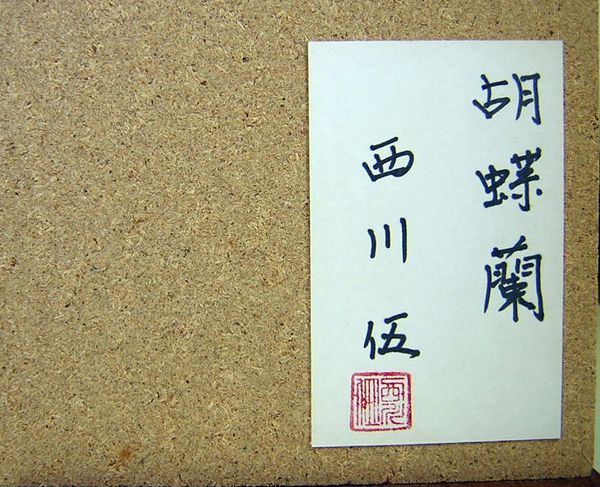 胡蝶蘭
西川伍